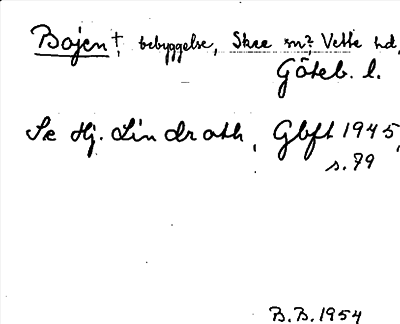 Bojen †, bebyggelse, Skee sn?, Vette hd,
Göteb. l.
Se Hj. Lindroth, Gbft 1945,
s. 79
B.B. 1954